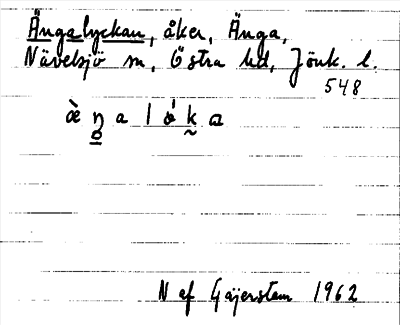 Ängalyckan, åker, Änga,
Nävelsjö sn, Östra hd, Jönk. l.
548
N af Gäijerstam 1962